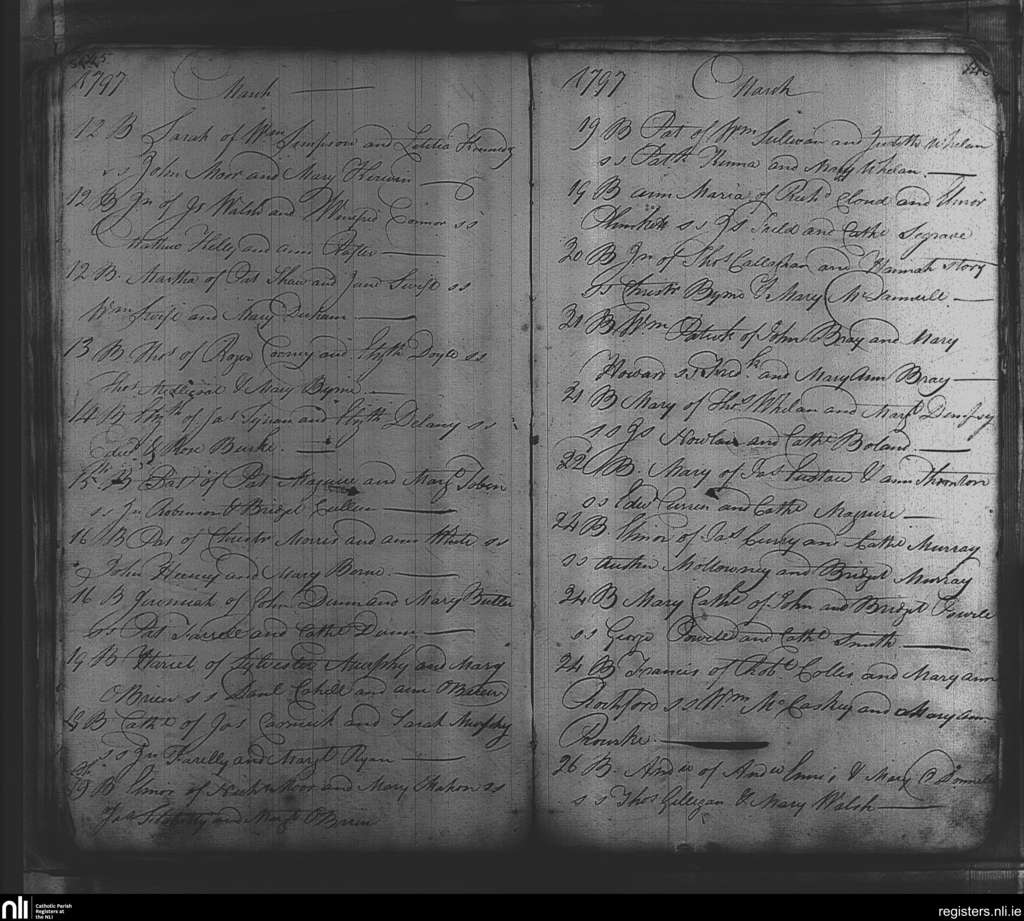 1797 March
12 B Sarah of Wm Simpson and Letitia Kennedy
ss John Moor and Mary Kerwin
12 B Jn of Js Walsh and Winifred Connor ss
Matthew Kelly and ann
12 B. Martha of Pat Shaw and Jane Swift ss
Wm Swift and Mary Durham
13 B Thos of Roger Cooney and Elizth Doyle ss
Thos & Mary Byrne
14 B Elizth of Jas Tynan and Elizth Delany ss
Edwd & Rose Burke.
15th B of Pat Maguire and Margt Tobin
ss Jn Robinson & Bridget Cullen
16 B Pat of Christr Morris and ann White ss
John Heeney and Mary Berne.
16 B Jeremiah of John Dunn and Mary Butler
ss Pat Farrell and Cathe Dunn
19 B Harriet of Sylvester Murphy and Mary
OBrien ss Danl Cahill and ann OBrien
B Cathe of Jas Carmick and Sarah Murphy
ss Jn Farelly and Margt Ryan
19 B Elinor of Nichs Moor and Mary Mahon ss
Jas and Margt OBrien
1797 March
19 B Pat of Wm Sullivan and Judith Whelan
ss Patk Kinna and Mary Whelan.
19 B ann Maria of Richd Cloud and Elinor
Plunkett ss Js Field and Cathe Segrave
20 B Jn of Thos Callaghan and Hannah Story
ss Christr Byrne & Mary McDannell.
21 B Wm Patrick of John Bray and Mary
Howard ss Fredk and Mary Ann Bray
21 B Mary of Thos Whelan and Margt Dempsey
ss Js Nowlan and Cathe Boland
22 B. Mary of Jas Eustace & ann Thornton
ss Edwd Curren and Cathe Maguire
24 B. Elinor of Jas Curry and Cathe Murray
ss Austin Mollowney and Bridget Murray
24 B Mary Cathe of John and Bridget Powell
ss George Powell and Cathe Smith
24 B Francis of Robt Colles and Mary ann
Rochford ss Wm McCaskey and Mary ann
Rourke
26 B. Andw of Andw Ennis & Mary O Donnell
ss Thos Gilligan & Mary Walsh
nli Catholic Parish
Registers at
the NLI
registers.nli.ie